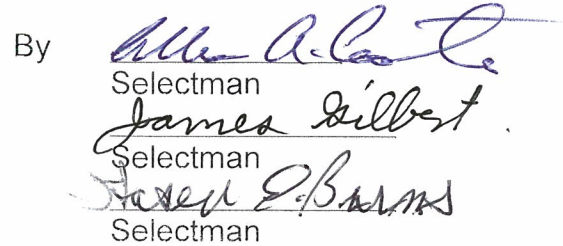 By Allen A. Coo
Selectman
James Gilbert.
Selectman
E. Burns
Selectman